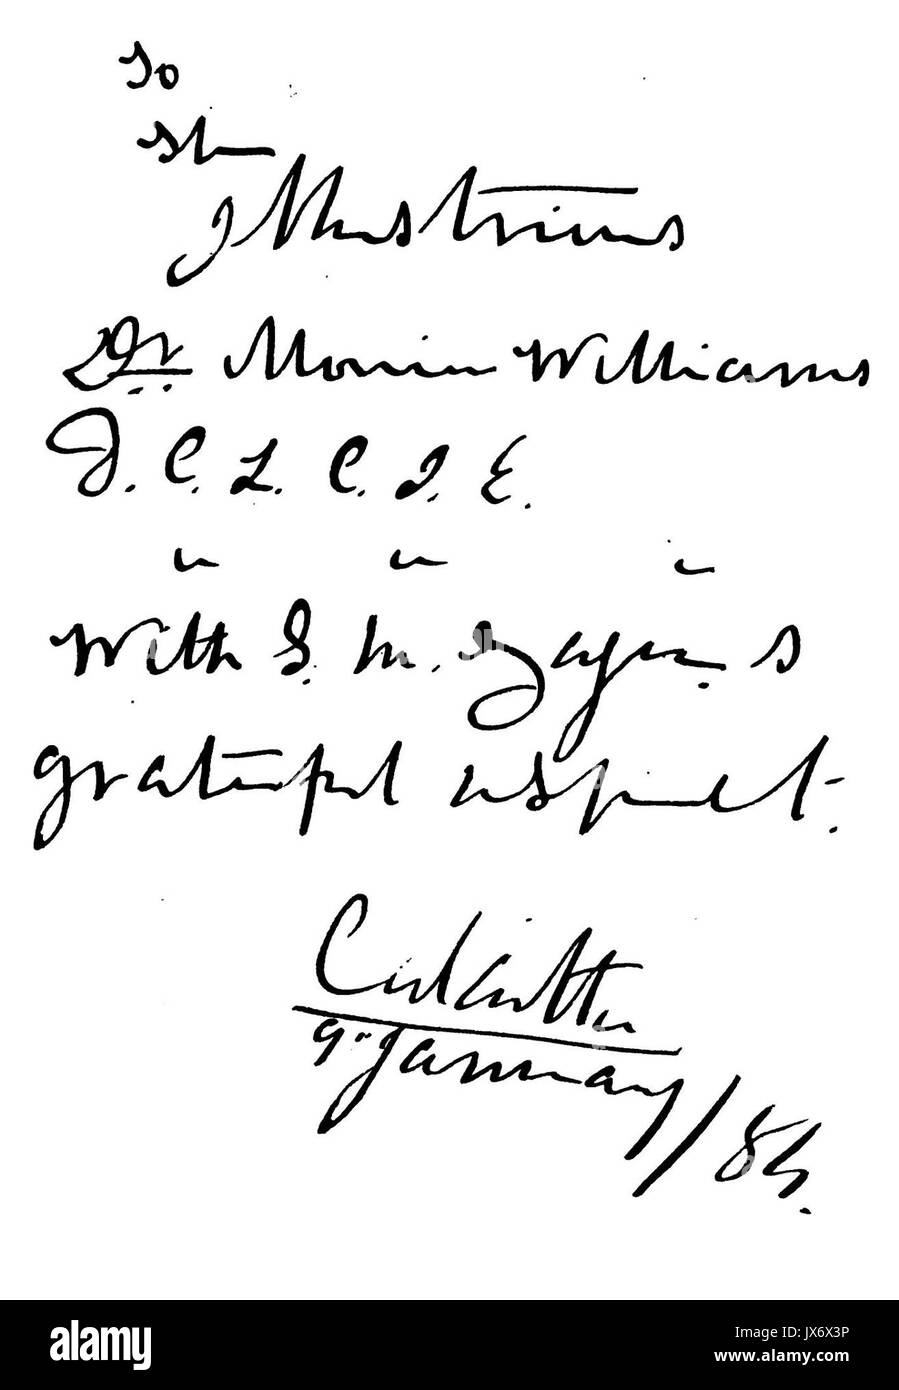 To
the
Illustrious
Dr. Monier Williams
D. C. L. C. I. E.
With S. M. Tagore's
grateful respect.
Calcutta
9. January / 84.
alamy
Image ID: JX6X3P
www.alamy.com